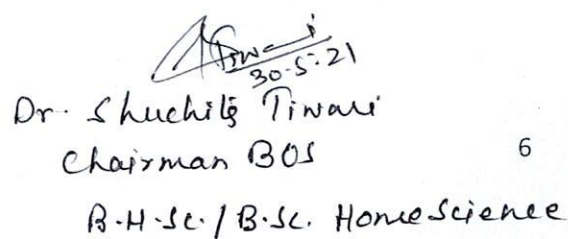 ATiwari
30.5.21
Dr. Shuchita Tiwari
Chairman BOS
6
B.H.Sc. / B.Sc. Home Science